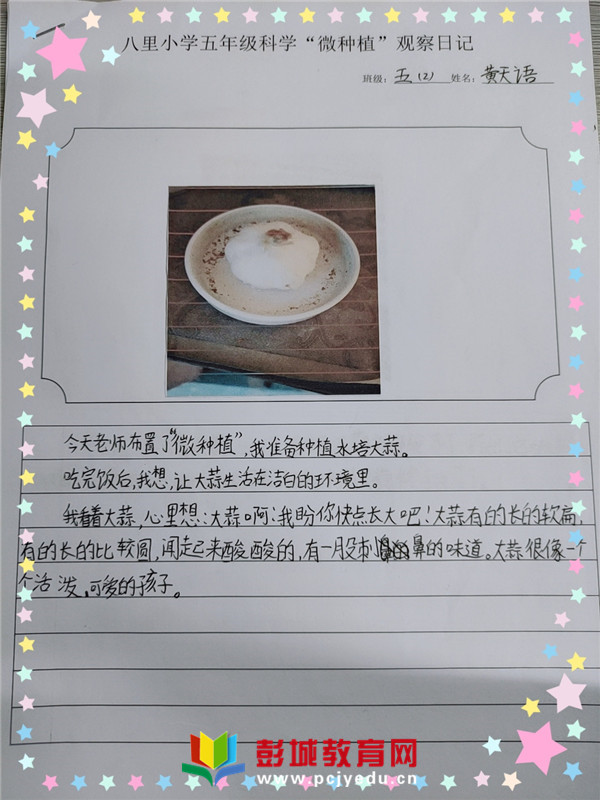 八里小学五年级科学“微种植”观察日记
班级：五(2) 姓名：黄天语
今天老师布置了“微种植”，我准备种植水培大蒜。
吃完饭后，我想，让大蒜生活在洁白的环境里。
我看着大蒜，心里想：大蒜啊！我盼你快点长大吧！大蒜有的长的较扁，
有的长的比较圆，闻起来酸酸的，有一股刺鼻的味道。大蒜很像一个
个活泼，可爱的孩子。
彭城教育网
www.pcjyedu.cn